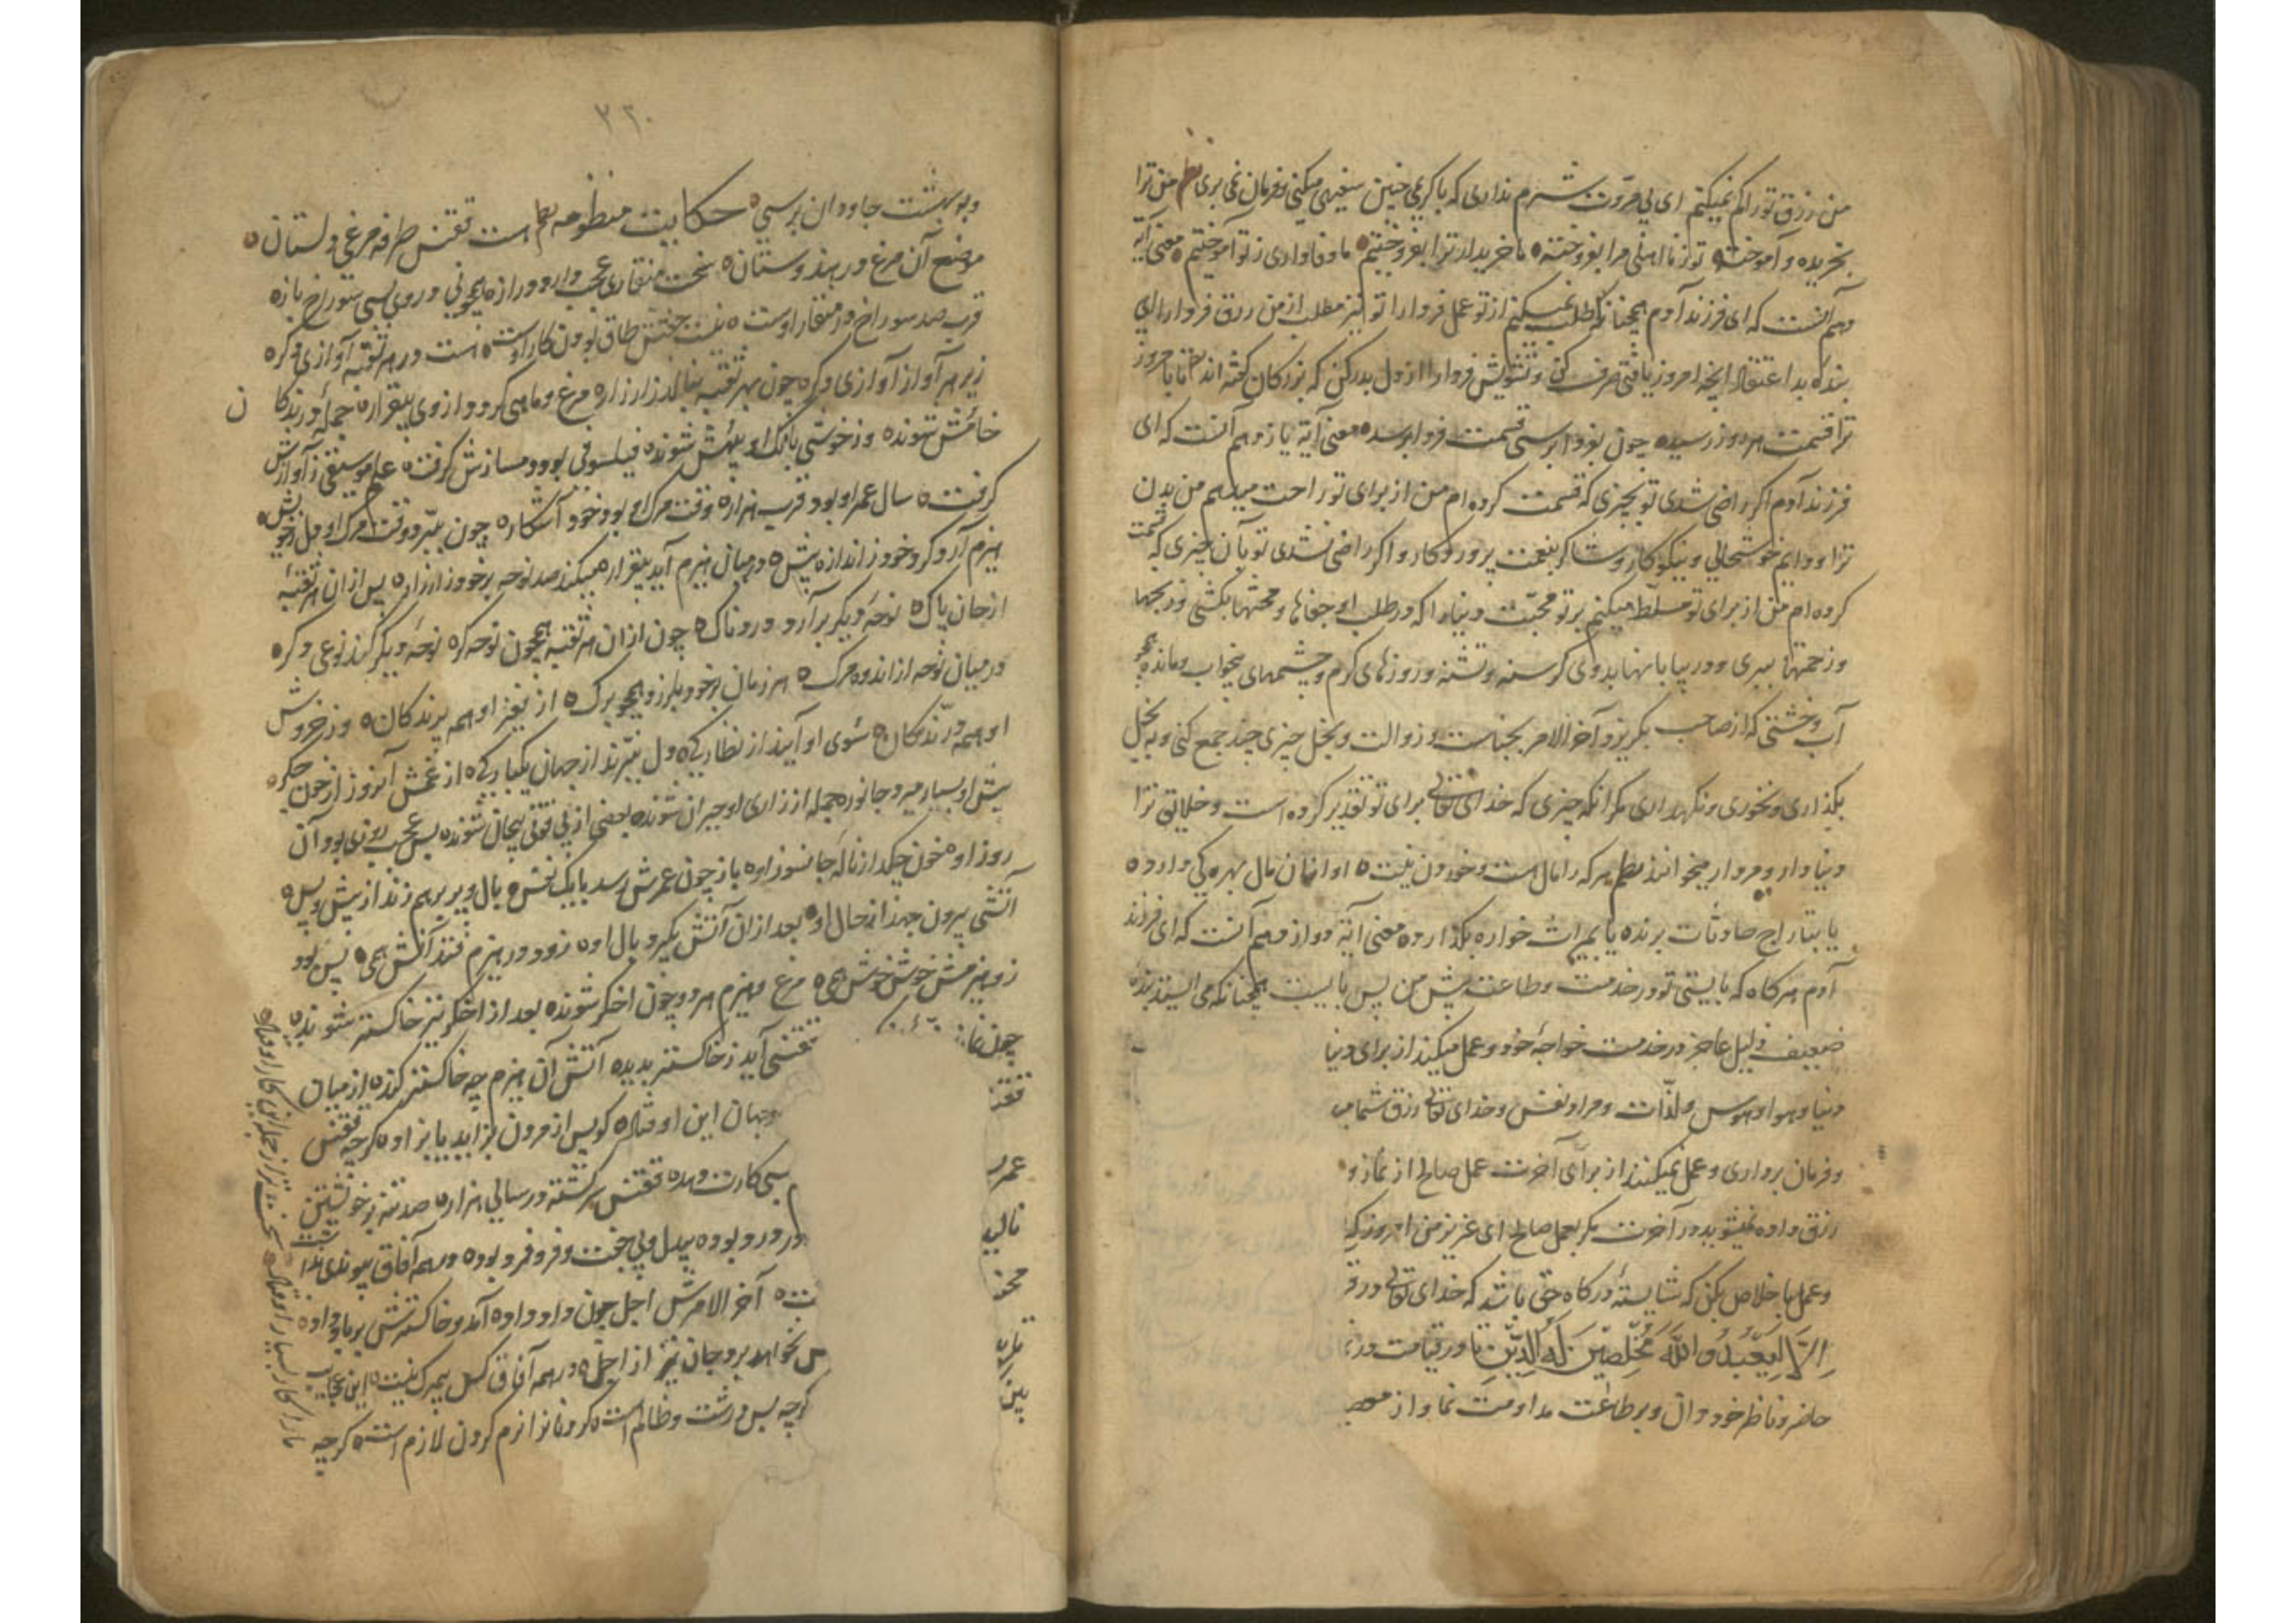 من رزق تو را کم نمیکنم ای بی مروّت شرم نداری که با کریمی چنین سفیهی میکنی و فرمان نمی بری نظم من ترا
بخریده و آموخته تو ز نااهلی مرا بفروخته ما خریدار ترا بفروختیم ما وفاداری ز تو آموختیم معنی آیة
دهم آنست که ای فرزند آدم همچنانکه طلب نمیکنم از تو عمل فردا را تو نیز مطلب از من رزق فردا را ای
بنده بد اعتقاد آنچه امروز یافتی صرف کن و تشویش فردا را از دل بدر کن که بزرگان گفته اند
ترا قسمت امروز رسیده چون بفردا برسی قسمت فردا برسد معنی آیة یازدهم آنست که ای
فرزند آدم اگر راضی شدی تو بچیزی که قسمت کرده ام من از برای تو راحت میدهم من بدن
ترا و دایم خوشحالی و نیکوکار و شاکر بنعمت پروردکار و اگر راضی نشدی تو بآن چیزی که قسمت
کرده ام من از برای تو مسلّط میکنم بر تو محبّت دنیا را که در طلب او جفاها و محنتها بکشی و رنجها
و زحمتها ببری و در بیابانها بدوی گرسنه و تشنه و روزهای گرم و چشمهای بیخواب و مانده همچو
آب وحشتی که از صاحب بگریزد و آخر الامر بخیانت و رذالت و بخل چیزی چند جمع کنی و به بخیل
بگذاری و نخوری و نگهداری مگر آنکه چیزی که خدای تعالی برای تو تقدیر کرده است و خلایق ترا
دنیادار و مردار میخوانند نظم هر که را مال هست و خوردن نیست او از آن مال بهره کی دارد
یا بتاراج حادثات برند یا بمیراث خواره بگذارد معنی آیة دوازدهم آنست که ای فرزند
آدم هر گاه که بایستی تو در خدمت و طاعت پیش من پس بایست همچنانکه می ایستد بنده
ضعیف ذلیل عاجز در خدمت خواجۀ خود و عمل میکنید از برای دنیا
دنیا و هوا و هوس و لذّات و مراد نفس و خدای تعالی رزق شما
و فرمان برداری و عمل نمیکنند از برای آخرت عمل صالح از نماز و
رزق داده نمیشوید در آخرت مگر بعمل صالح ای عزیز من امروز که
و عمل باخلاص بکن که شایستۀ درگاه حق باشد که خدای تعالی در
اِلاَّ لِیَعبُدُوا اللّهَ مُخلِصینَ لَهُ الدّینَ تا در قیامت
حاضر و ناظر خود دان و بر طاعت مداومت نما و از
۲۲۰
و ببهشت جاودان برسی حکایت منظومه نظم است ققنس طرفه مرغی دلستان
موضع آن مرغ در هندوستان سخت منقاری عجب دارد دراز همچو نی در وی بسی سوراخ باز
قرب صد سوراخ در منقار اوست نیست جفتش طاق بودن کار اوست هست در هر ثقبه آوازی دگر
زیر هر آواز آوازی دگر چون بهر ثقبه بنالد زار زار مرغ و ماهی گردد از وی بیقرار جملۀ درندگان
خامش شوند وز خوشی بانگ او بیهش شوند فیلسوفی بود دمسازش گرفت علم موسیقی ز آوازش
گرفت سال عمر او بود قرب هزار وقت مرگ او بود خود آشکار چون ببرد وقت مرگ او دل ز خویش
هیزم آرد گرد خود ز اندازه بیش در میان هیزم آید بیقرار میکند صد نوحه بر خود زار زار پس از آن هر ثقبۀ
از جان پاک نوحۀ دیگر برآرد دردناک چون از آن هر ثقبه همچون نوحه گر نوحۀ دیگر کند نوعی دگر
در میان نوحه از اندوه مرگ هر زمان بر خود بلرزد همچو برگ از نفیر او همه پرندگان وز خروش
او همه درّندگان سوی او آیند از نظارگی دل ببرند از جهان یکبارگی از غمش آن روز از خون جگر
پیش او بسیار میرد جانور جمله از زاری او حیران شوند بعضی از بی قوتی بیجان شوند بس عجب روزی بود آن
روز او خون چکد از نالۀ جانسوز او باز چون عمرش رسد با یک نفس بال و پر بر هم زند از پیش و پس
آتشی بیرون جهد از بال او بعد از آن آتش بگیرد بال او زود در هیزم فتد آتش همی پس بسو
زد هیزمش خوش خوش همی مرغ و هیزم هر دو چون اخگر شوند بعد از اخگر نیز خاکستر شوند
چون نماند
ققنسی آید ز خاکستر پدید آتش آن هیزم چو خاکستر کند از میان
ققنس
در جهان این اوفتاد کو پس از مردن بزاید یا بزاد گرچه ققنس
عمر
بسی کارت دهد ققنس سرگشته در سالی هزار صد تنه بر خویشتن
نالید
در درد بود بیدل و بی جفت و فرد فرد بود در همه آفاق پیوندی نداشت
محنت
آخر الامرش اجل چون داد داد آمد و خاکسترش بر باد داد
تا بدانی
نخواهد برد جان نیز از اجل در همه آفاق کس بی مرگ نیست این عجایب
بین
گرچه بس درشت و ظالم است گردنانرا نرم کردن لازم است گرچه
ما را کار بسیار اوفتاد سخت تر از جمله این کار اوفتاد